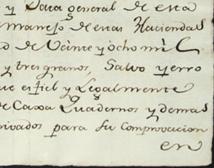 y Data general de esta
manejo de estas Haciendas
de Veinte y ocho mil
y tres granos, Salvo yerro
que es fiel y Legalmente
de Caxa Quadernos y demas
para su Comprovacion
en